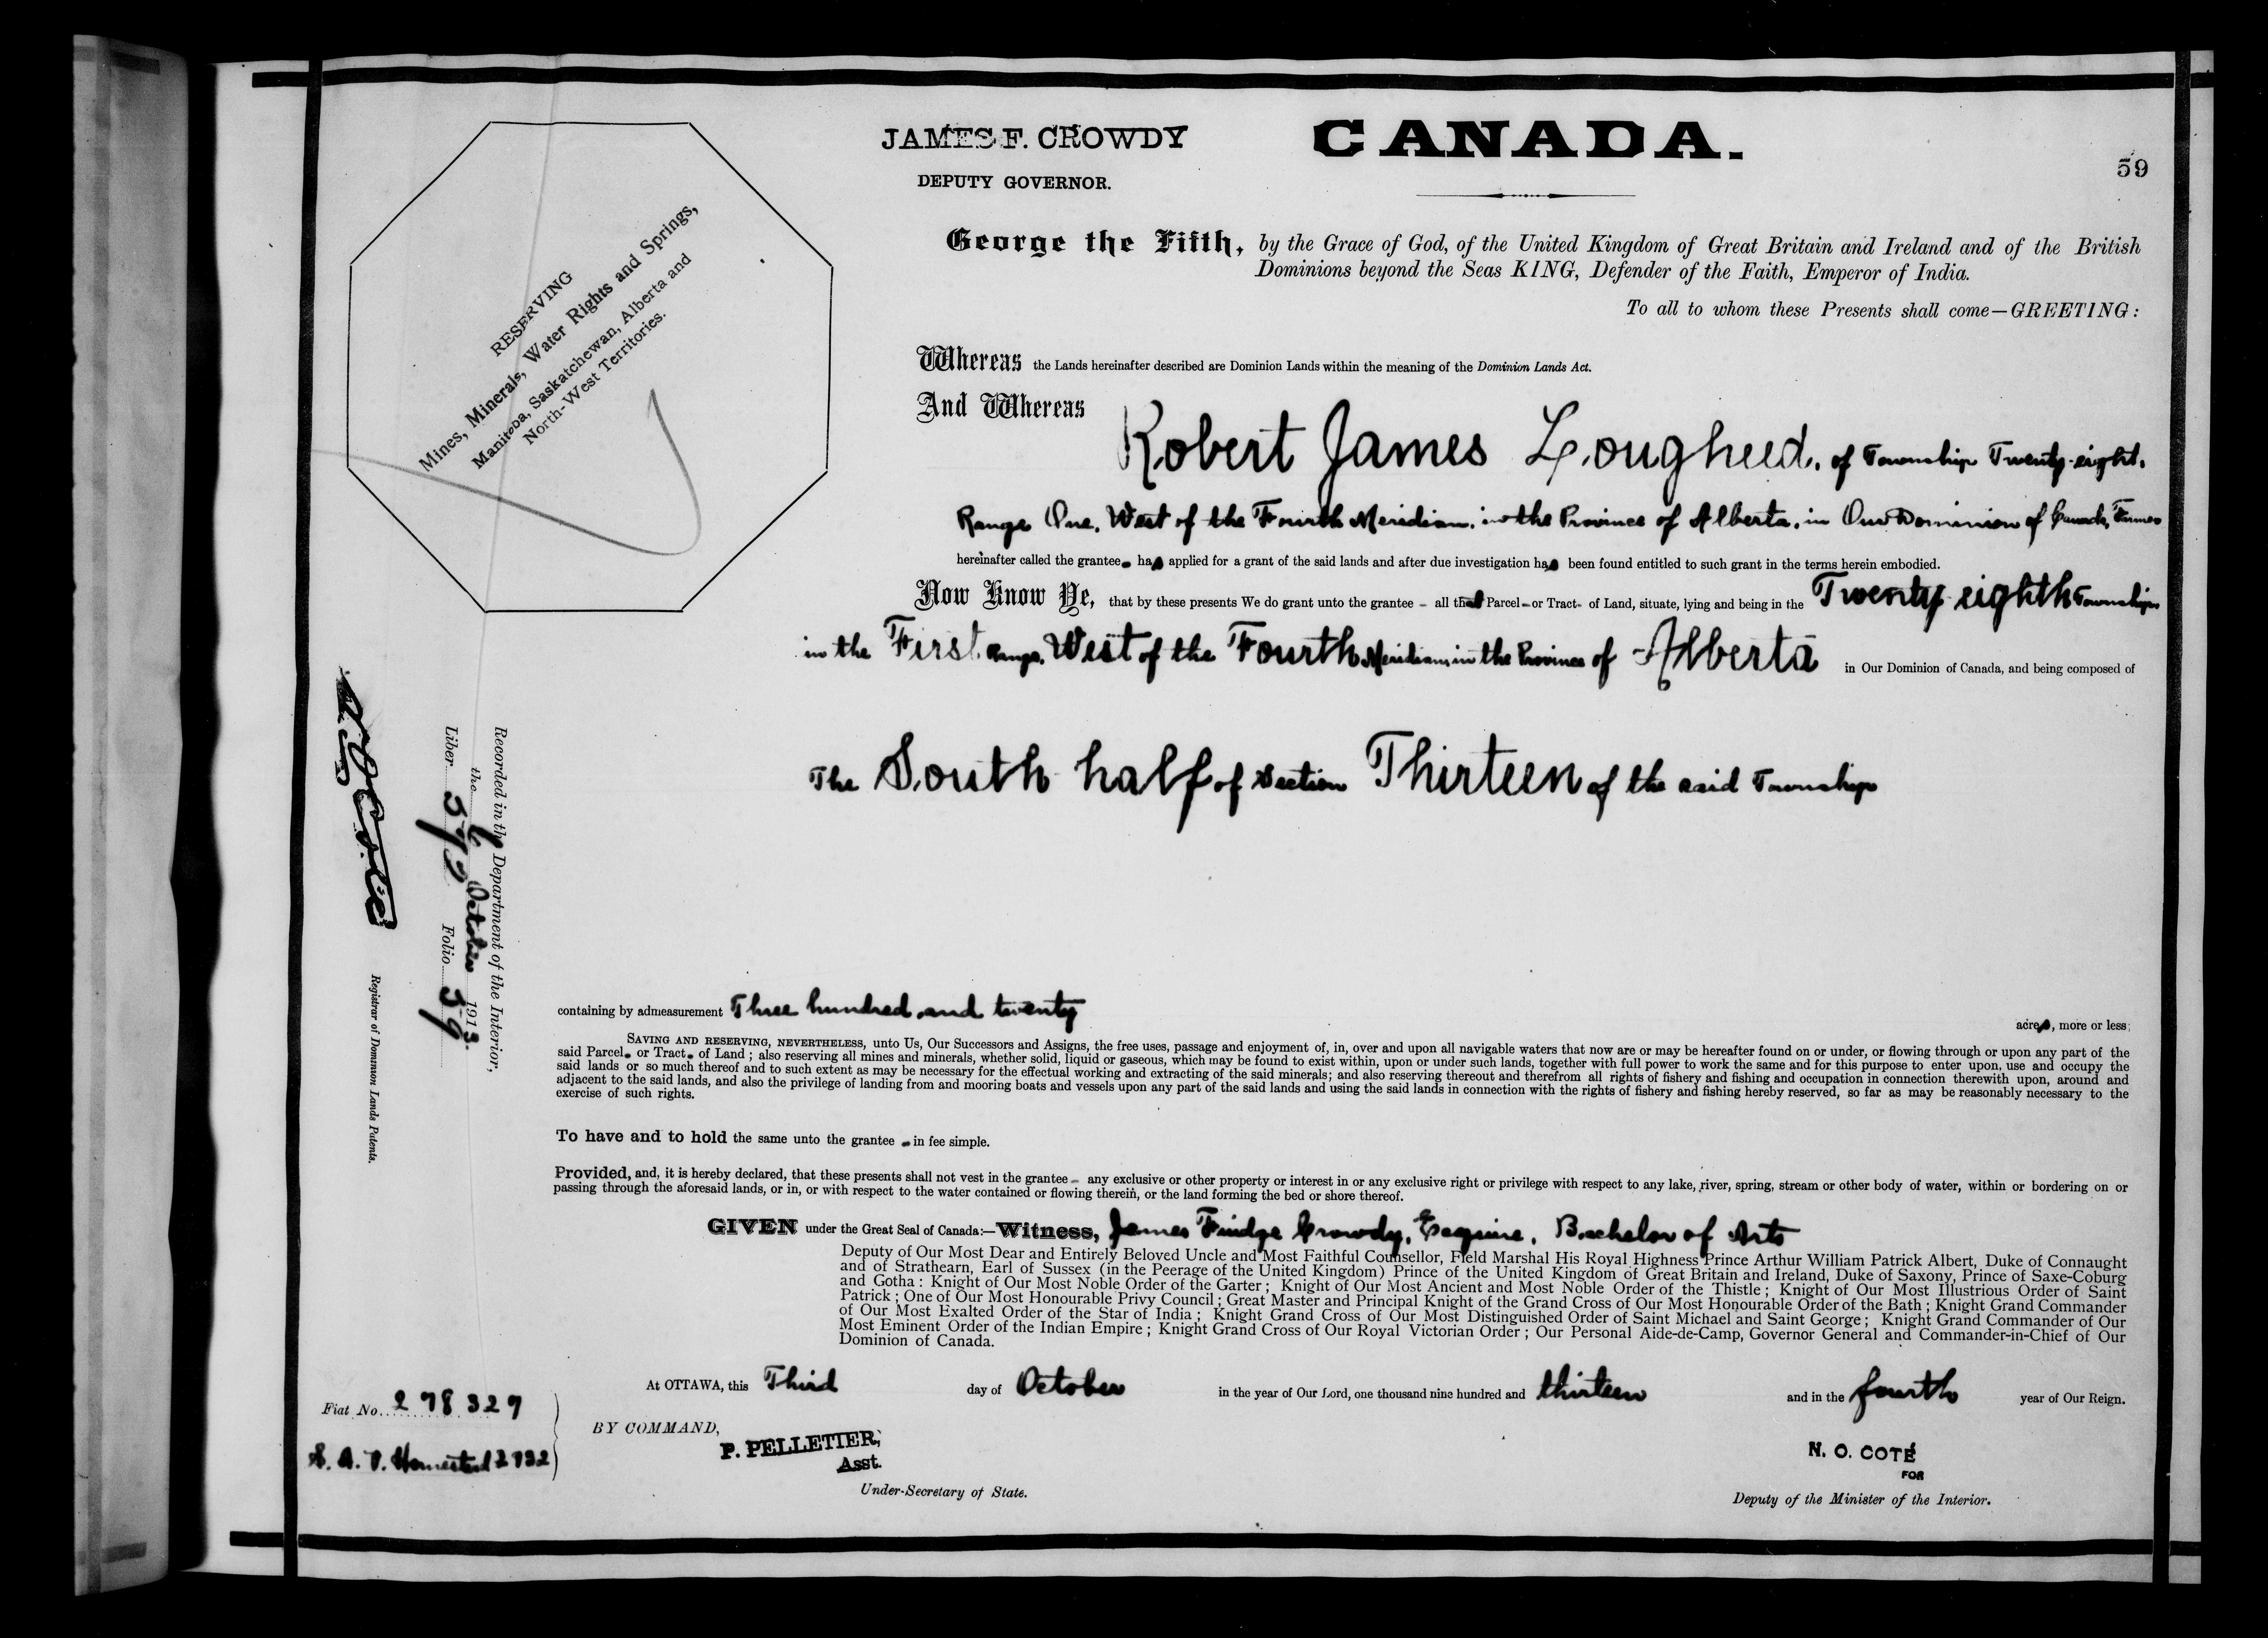 JAMES F. CROWDY
DEPUTY GOVERNOR.
CANADA.
59
George the Fifth, by the Grace of God, of the United Kingdom of Great Britain and Ireland and of the British
Dominions beyond the Seas KING, Defender of the Faith, Emperor of India.
To all to whom these Presents shall come—GREETING:
RESERVING
Mines, Minerals, Water Rights and Springs,
Manitoba, Saskatchewan, Alberta and
North-West Territories.
Whereas the Lands hereinafter described are Dominion Lands within the meaning of the Dominion Lands Act.
And Whereas
Robert James Lougheed, of Township Twenty-eight,
Range One, West of the Fourth Meridian, in the Province of Alberta, in Our Dominion of Canada, Farmer
hereinafter called the grantee has applied for a grant of the said lands and after due investigation has been found entitled to such grant in the terms herein embodied.
Now Know Ye, that by these presents We do grant unto the grantee - all that Parcel - or Tract - of Land, situate, lying and being in the Twenty eighth Township
in the First Range, West of the Fourth Meridian, in the Province of Alberta in Our Dominion of Canada, and being composed of
The South half of Section Thirteen of the said Township
Recorded in the Department of the Interior,
the 6 October 1913.
Liber 592 Folio 59
N O Coté
Registrar of Dominion Lands Patents.
containing by admeasurement Three hundred and twenty
acres, more or less;
SAVING AND RESERVING, NEVERTHELESS, unto Us, Our Successors and Assigns, the free uses, passage and enjoyment of, in, over and upon all navigable waters that now are or may be hereafter found on or under, or flowing through or upon any part of the
said Parcel - or Tract - of Land ; also reserving all mines and minerals, whether solid, liquid or gaseous, which may be found to exist within, upon or under such lands, together with full power to work the same and for this purpose to enter upon, use and occupy the
said lands or so much thereof and to such extent as may be necessary for the effectual working and extracting of the said minerals; and also reserving thereout and therefrom all rights of fishery and fishing and occupation in connection therewith upon, around and
adjacent to the said lands, and also the privilege of landing from and mooring boats and vessels upon any part of the said lands and using the said lands in connection with the rights of fishery and fishing hereby reserved, so far as may be reasonably necessary to the
exercise of such rights.
To have and to hold the same unto the grantee - in fee simple.
Provided, and, it is hereby declared, that these presents shall not vest in the grantee - any exclusive or other property or interest in or any exclusive right or privilege with respect to any lake, river, spring, stream or other body of water, within or bordering on or
passing through the aforesaid lands, or in, or with respect to the water contained or flowing therein, or the land forming the bed or shore thereof.
GIVEN under the Great Seal of Canada:—Witness, James Fudge Crowdy, Esquire, Bachelor of Arts
Deputy of Our Most Dear and Entirely Beloved Uncle and Most Faithful Counsellor, Field Marshal His Royal Highness Prince Arthur William Patrick Albert, Duke of Connaught
and of Strathearn, Earl of Sussex (in the Peerage of the United Kingdom) Prince of the United Kingdom of Great Britain and Ireland, Duke of Saxony, Prince of Saxe-Coburg
and Gotha : Knight of Our Most Noble Order of the Garter ; Knight of Our Most Ancient and Most Noble Order of the Thistle ; Knight of Our Most Illustrious Order of Saint
Patrick ; One of Our Most Honourable Privy Council ; Great Master and Principal Knight of the Grand Cross of Our Most Honourable Order of the Bath ; Knight Grand Commander
of Our Most Exalted Order of the Star of India ; Knight Grand Cross of Our Most Distinguished Order of Saint Michael and Saint George ; Knight Grand Commander of Our
Most Eminent Order of the Indian Empire ; Knight Grand Cross of Our Royal Victorian Order ; Our Personal Aide-de-Camp, Governor General and Commander-in-Chief of Our
Dominion of Canada.
At OTTAWA, this Third day of October in the year of Our Lord, one thousand nine hundred and thirteen and in the fourth year of Our Reign.
Fiat No. 278329
S. A. V. Homestead 2732
BY COMMAND,
P. PELLETIER,
Asst.
Under-Secretary of State.
N. O. COTÉ
FOR
Deputy of the Minister of the Interior.